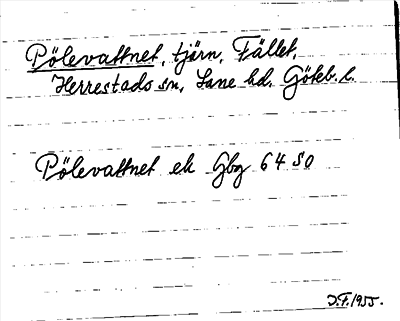 Pölevattnet, tjärn, Fället,
Herrestads sn, Lane hd. Göteb. l.
Pölevattnet ek Gbg 64 SO
D.F. 1955.